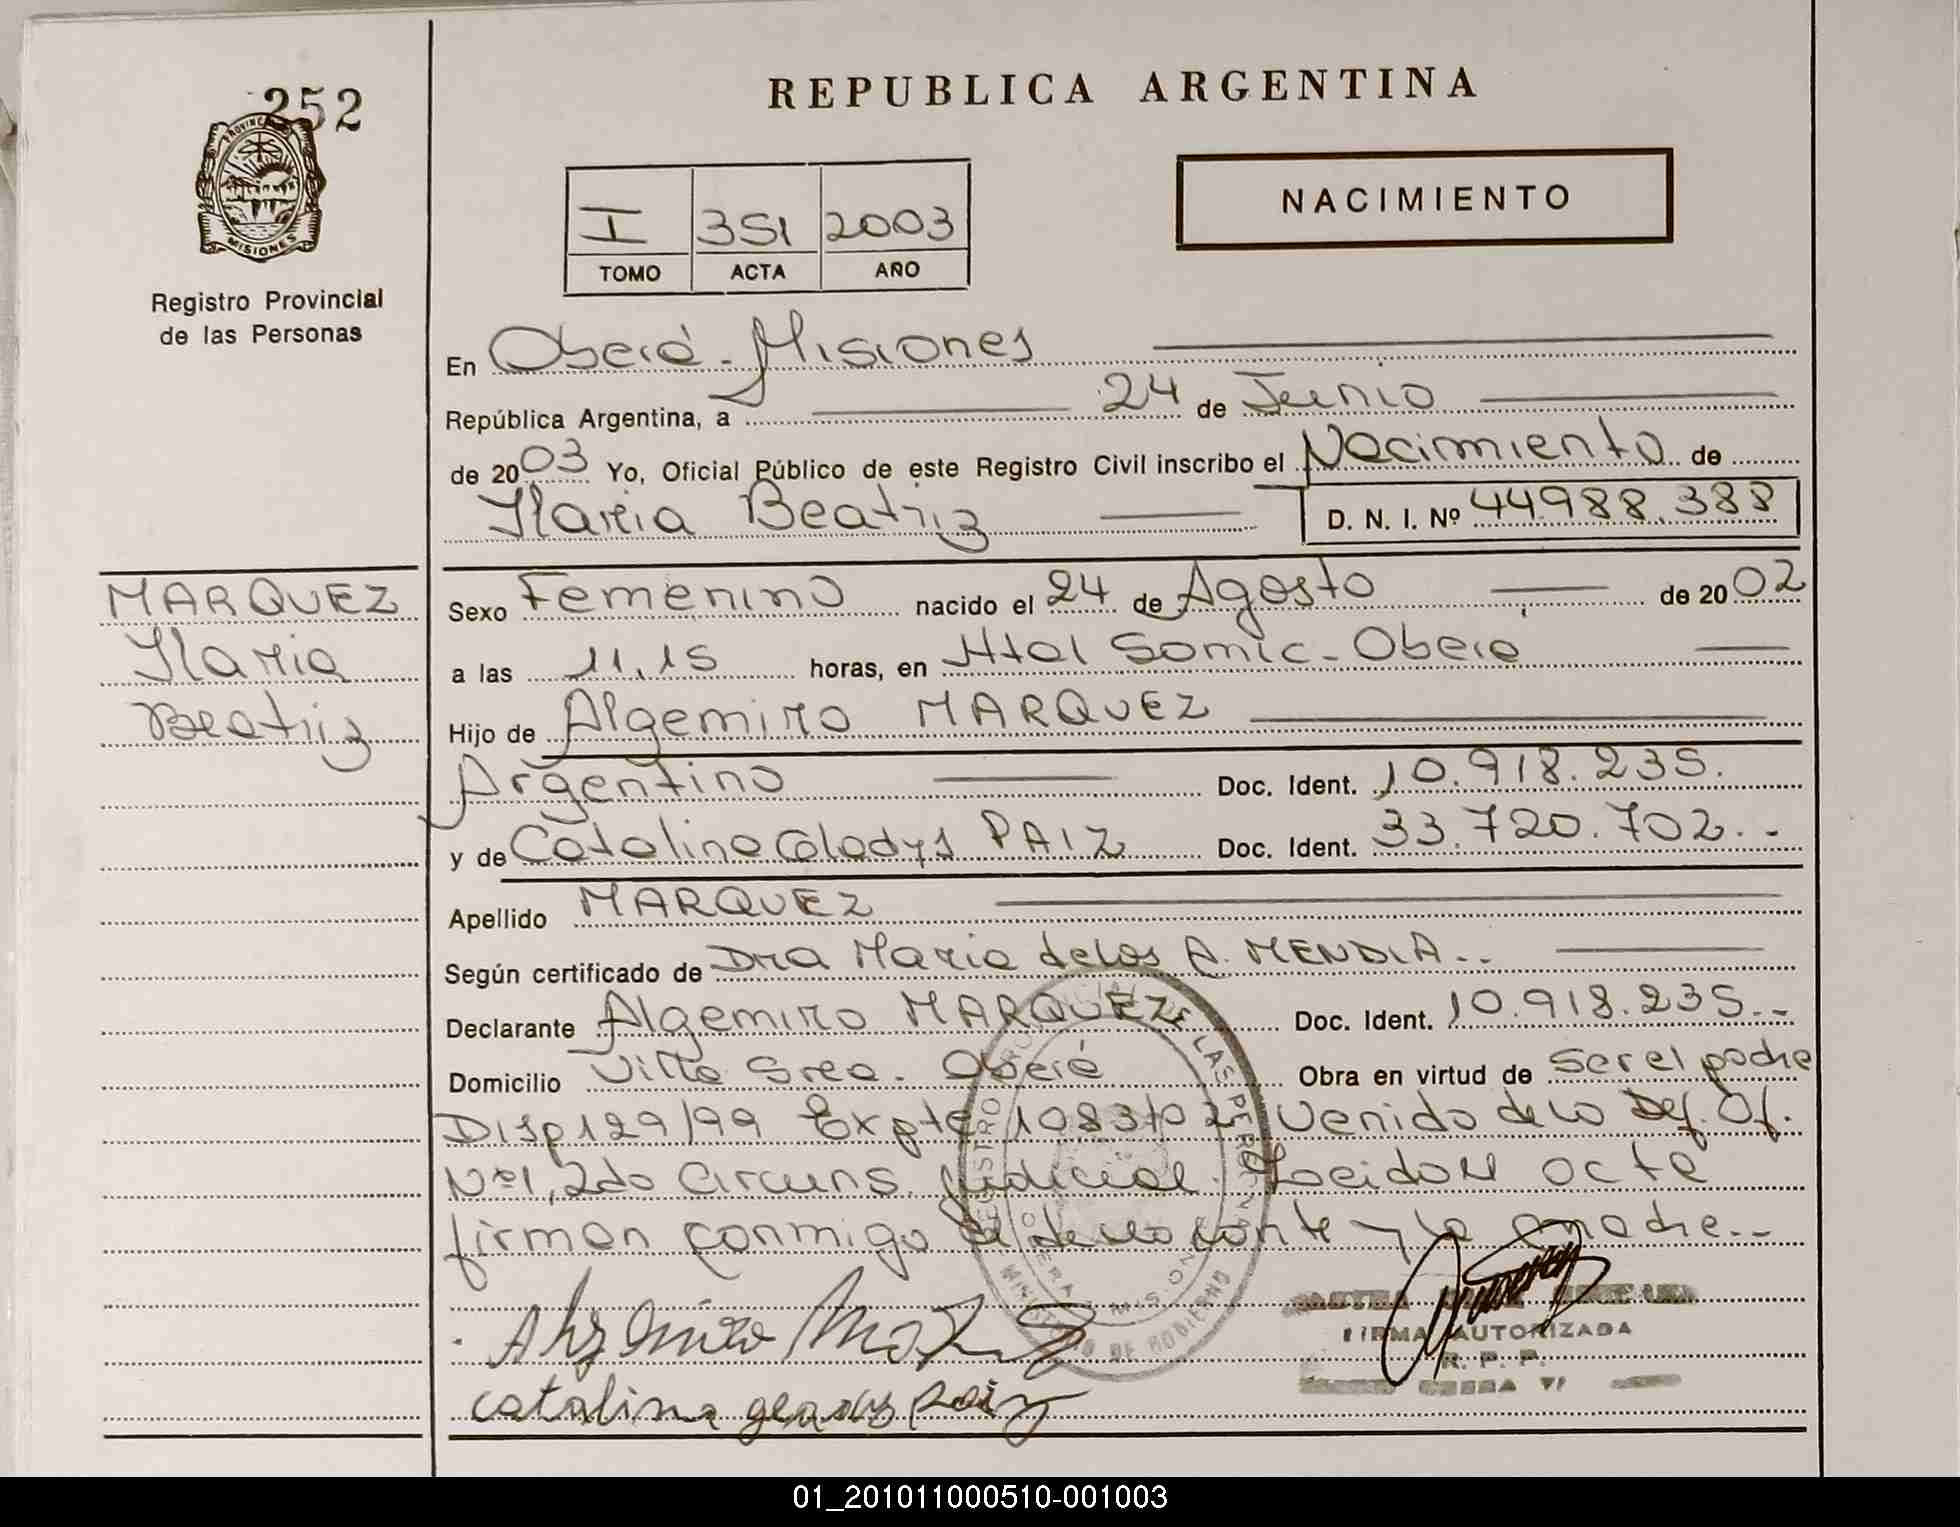 252
PROVINCIA
MISIONES
Registro Provincial
de las Personas
REPUBLICA ARGENTINA
NACIMIENTO
I 351 2003
TOMO ACTA AÑO
En Oberá - Misiones
República Argentina, a 24 de Junio
de 2003 Yo, Oficial Público de este Registro Civil inscribo el Nacimiento de
Maria Beatriz D. N. I. Nº 44.988.388
MARQUEZ
Maria
Beatriz
Sexo Femenino nacido el 24 de Agosto de 2002
a las 11,15 horas, en Htal Samic - Oberá
Hijo de Algemiro MARQUEZ
Argentino Doc. Ident. 10.918.235.
y de Catalina Gladys PAIZ Doc. Ident. 33.720.702.-
Apellido MARQUEZ
Según certificado de Dra Maria de los A. MENDIA..
Declarante Algemiro MARQUEZ Doc. Ident. 10.918.235.-
Domicilio Villa Oberá Obra en virtud de ser el padre
Disp 129/99 Expte 1083/02 venido de la Def. Of.
Nº1, 2da Circuns. Judicial. Leida el acta
firman conmigo el declarante y la madre..
REGISTRO LAS PERSONAS
MINISTERIO DE GOBIERNO
Algemiro Marquez
catalina gladys Paiz
FIRMA AUTORIZADA
R. P. P.
01_201011000510-001003